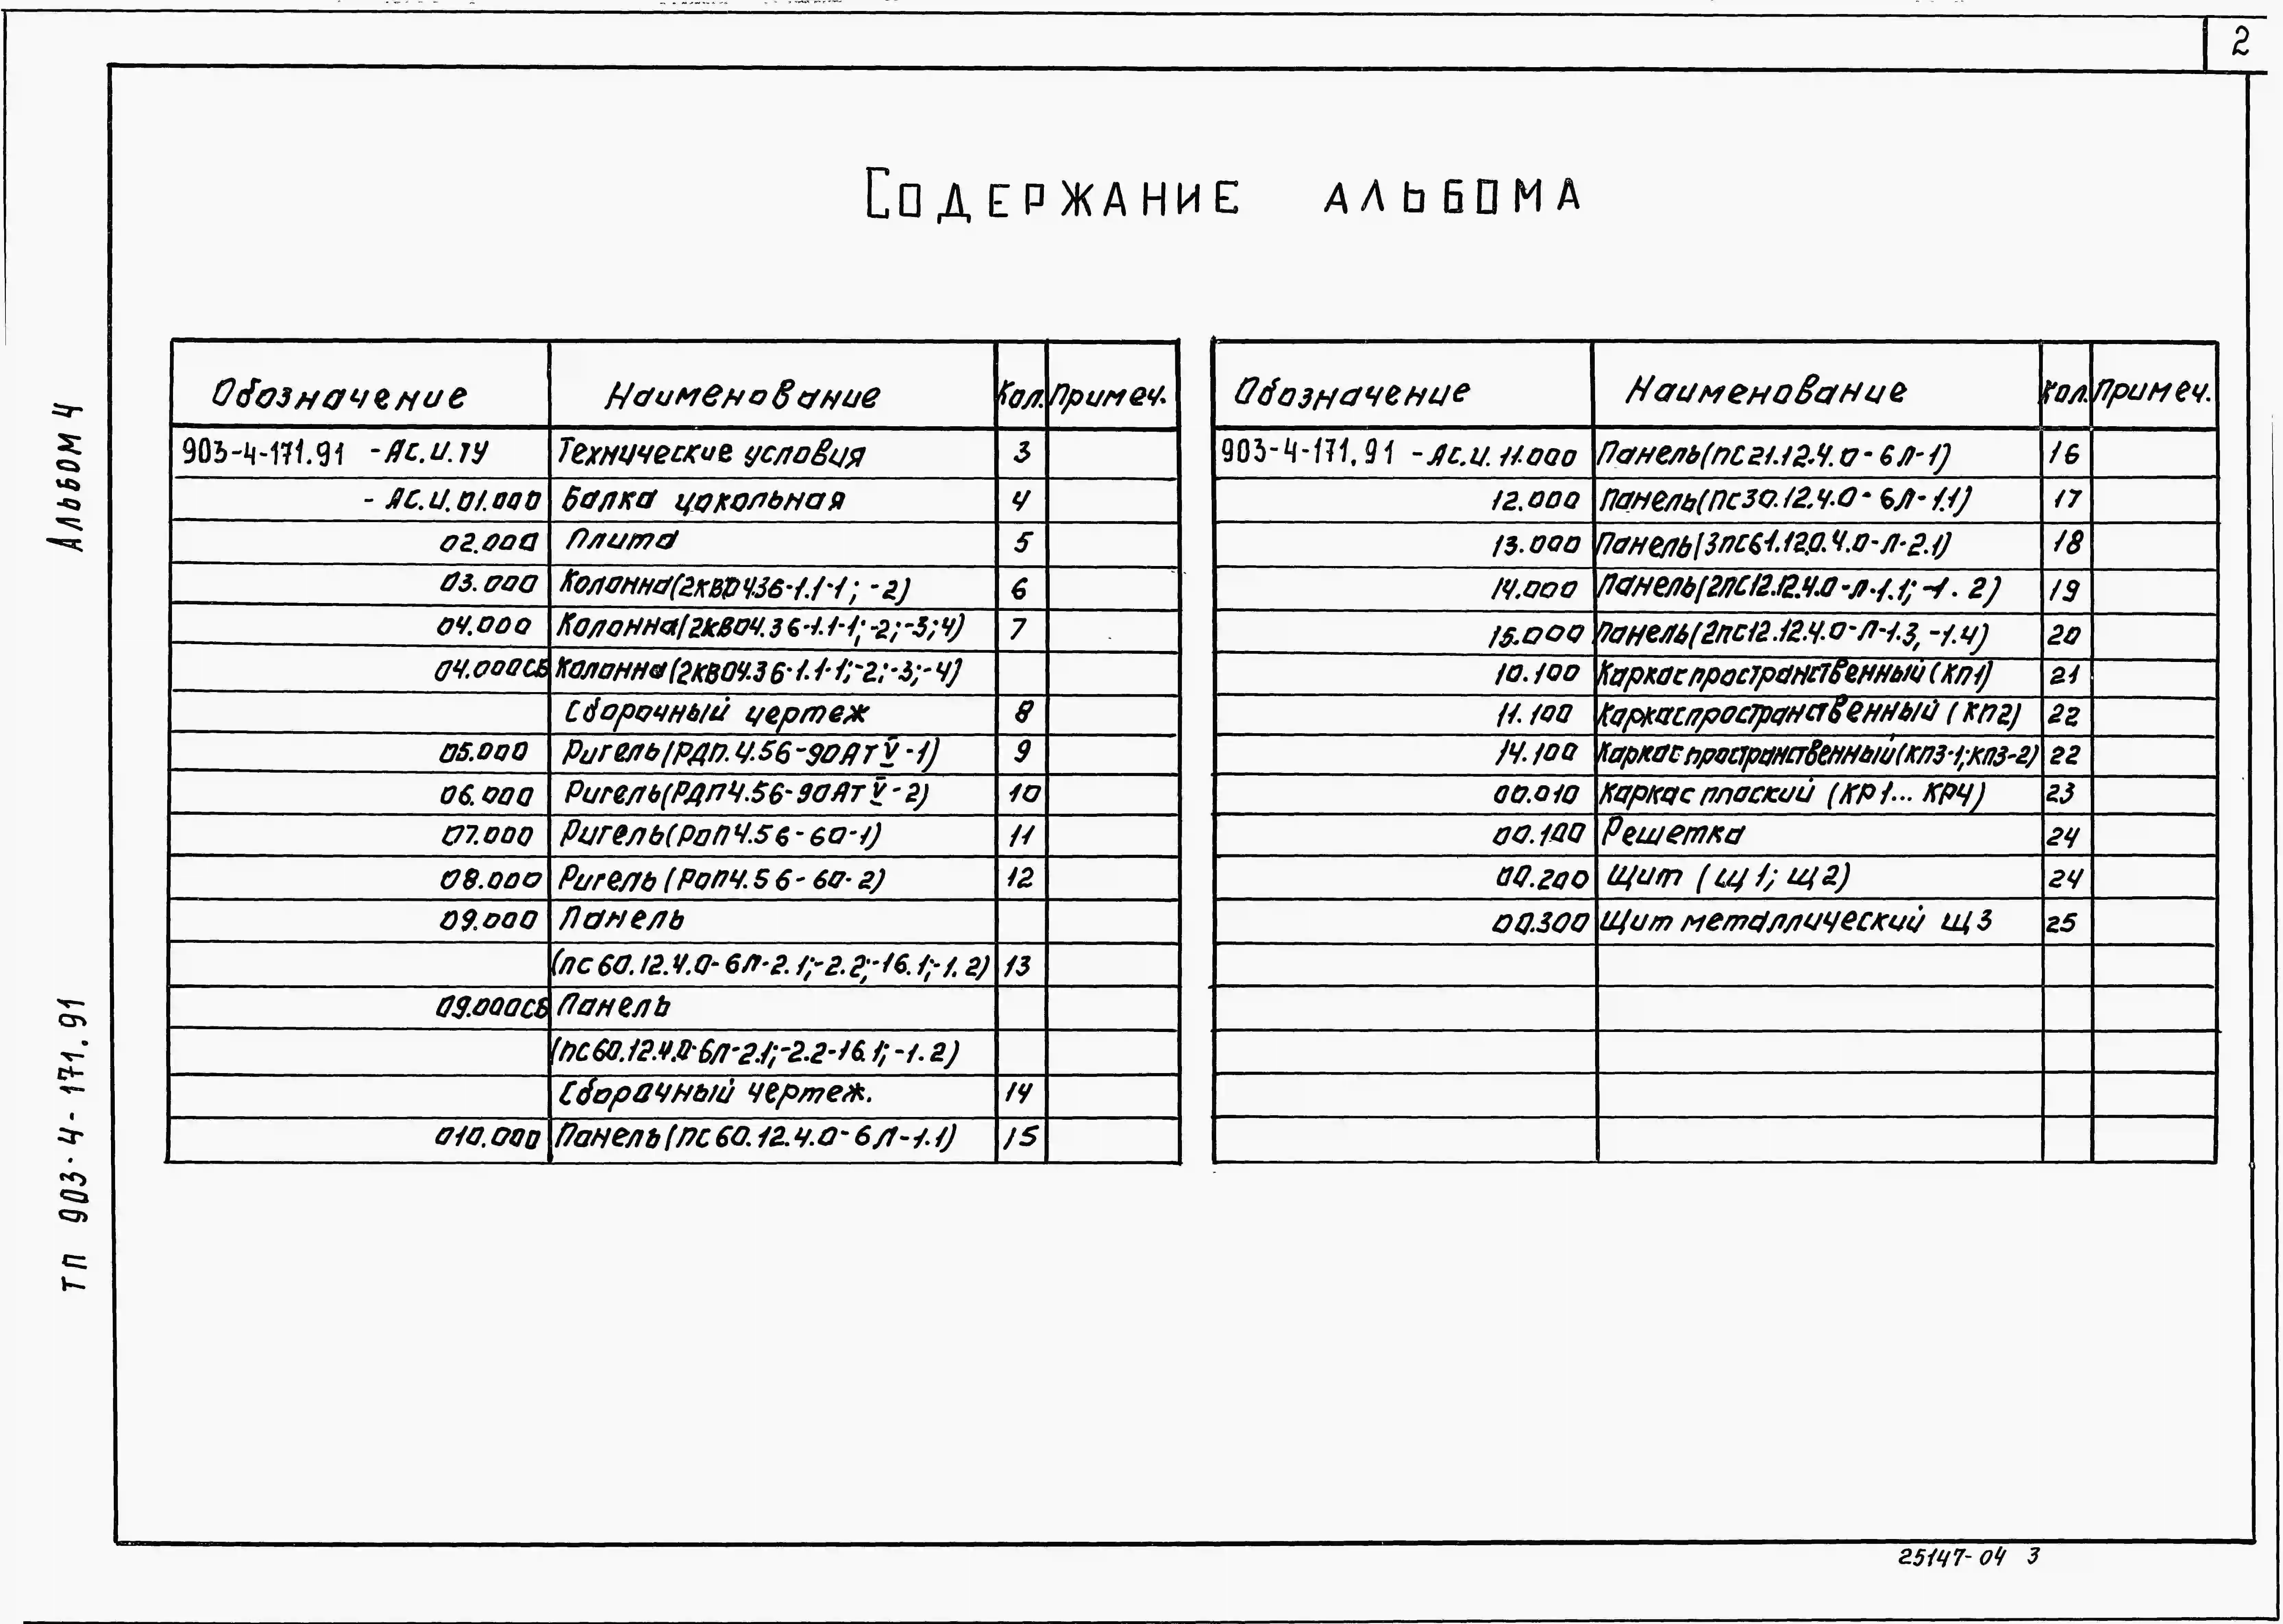 2
Содержание альбома
Альбом 4
ТП 903-4-171.91
Обозначение Наименование Кол. Примеч.
903-4-171.91 -АС.И.ТУ Технические условия 3
- АС.И.01.000 Балка цокольная 4
02.000 Плита 5
03.000 Колонна(2КВО436-1.1-1; -2) 6
04.000 Колонна(2КВО4.36-1.1-1;-2;-3;4) 7
04.000СБ Колонна(2КВО4.36-1.1-1;-2;-3;-4)
Сборочный чертеж 8
05.000 Ригель(РДП.4.56-90АтV-1) 9
06.000 Ригель(РДП4.56-90АтV-2) 10
07.000 Ригель(РОП4.56-60-1) 11
08.000 Ригель(РОП4.56-60-2) 12
09.000 Панель
(ПС60.12.4.0-6Л-2.1;-2.2;-16.1;-1.2) 13
09.000СБ Панель
(ПС60.12.4.0-6Л-2.1;-2.2-16.1;-1.2)
Сборочный чертеж. 14
010.000 Панель(ПС60.12.4.0-6Л-1.1) 15
Обозначение Наименование Кол. Примеч.
903-4-171.91 -АС.И.11.000 Панель(ПС21.12.4.0-6Л-1) 16
12.000 Панель(ПС30.12.4.0-6Л-1.1) 17
13.000 Панель(3ПС61.120.4.0-Л-2.1) 18
14.000 Панель(2ПС12.12.4.0-Л-1.1; -1.2) 19
15.000 Панель(2ПС12.12.4.0-Л-1.3, -1.4) 20
10.100 Каркас пространственный(КП1) 21
11.100 Каркас пространственный (КП2) 22
14.100 Каркас пространственный(КП3-1;КП3-2) 22
00.010 Каркас плоский (КР1... КР4) 23
00.100 Решетка 24
00.200 Щит (Щ1; Щ2) 24
00.300 Щит металлический Щ3 25
25147-04 3